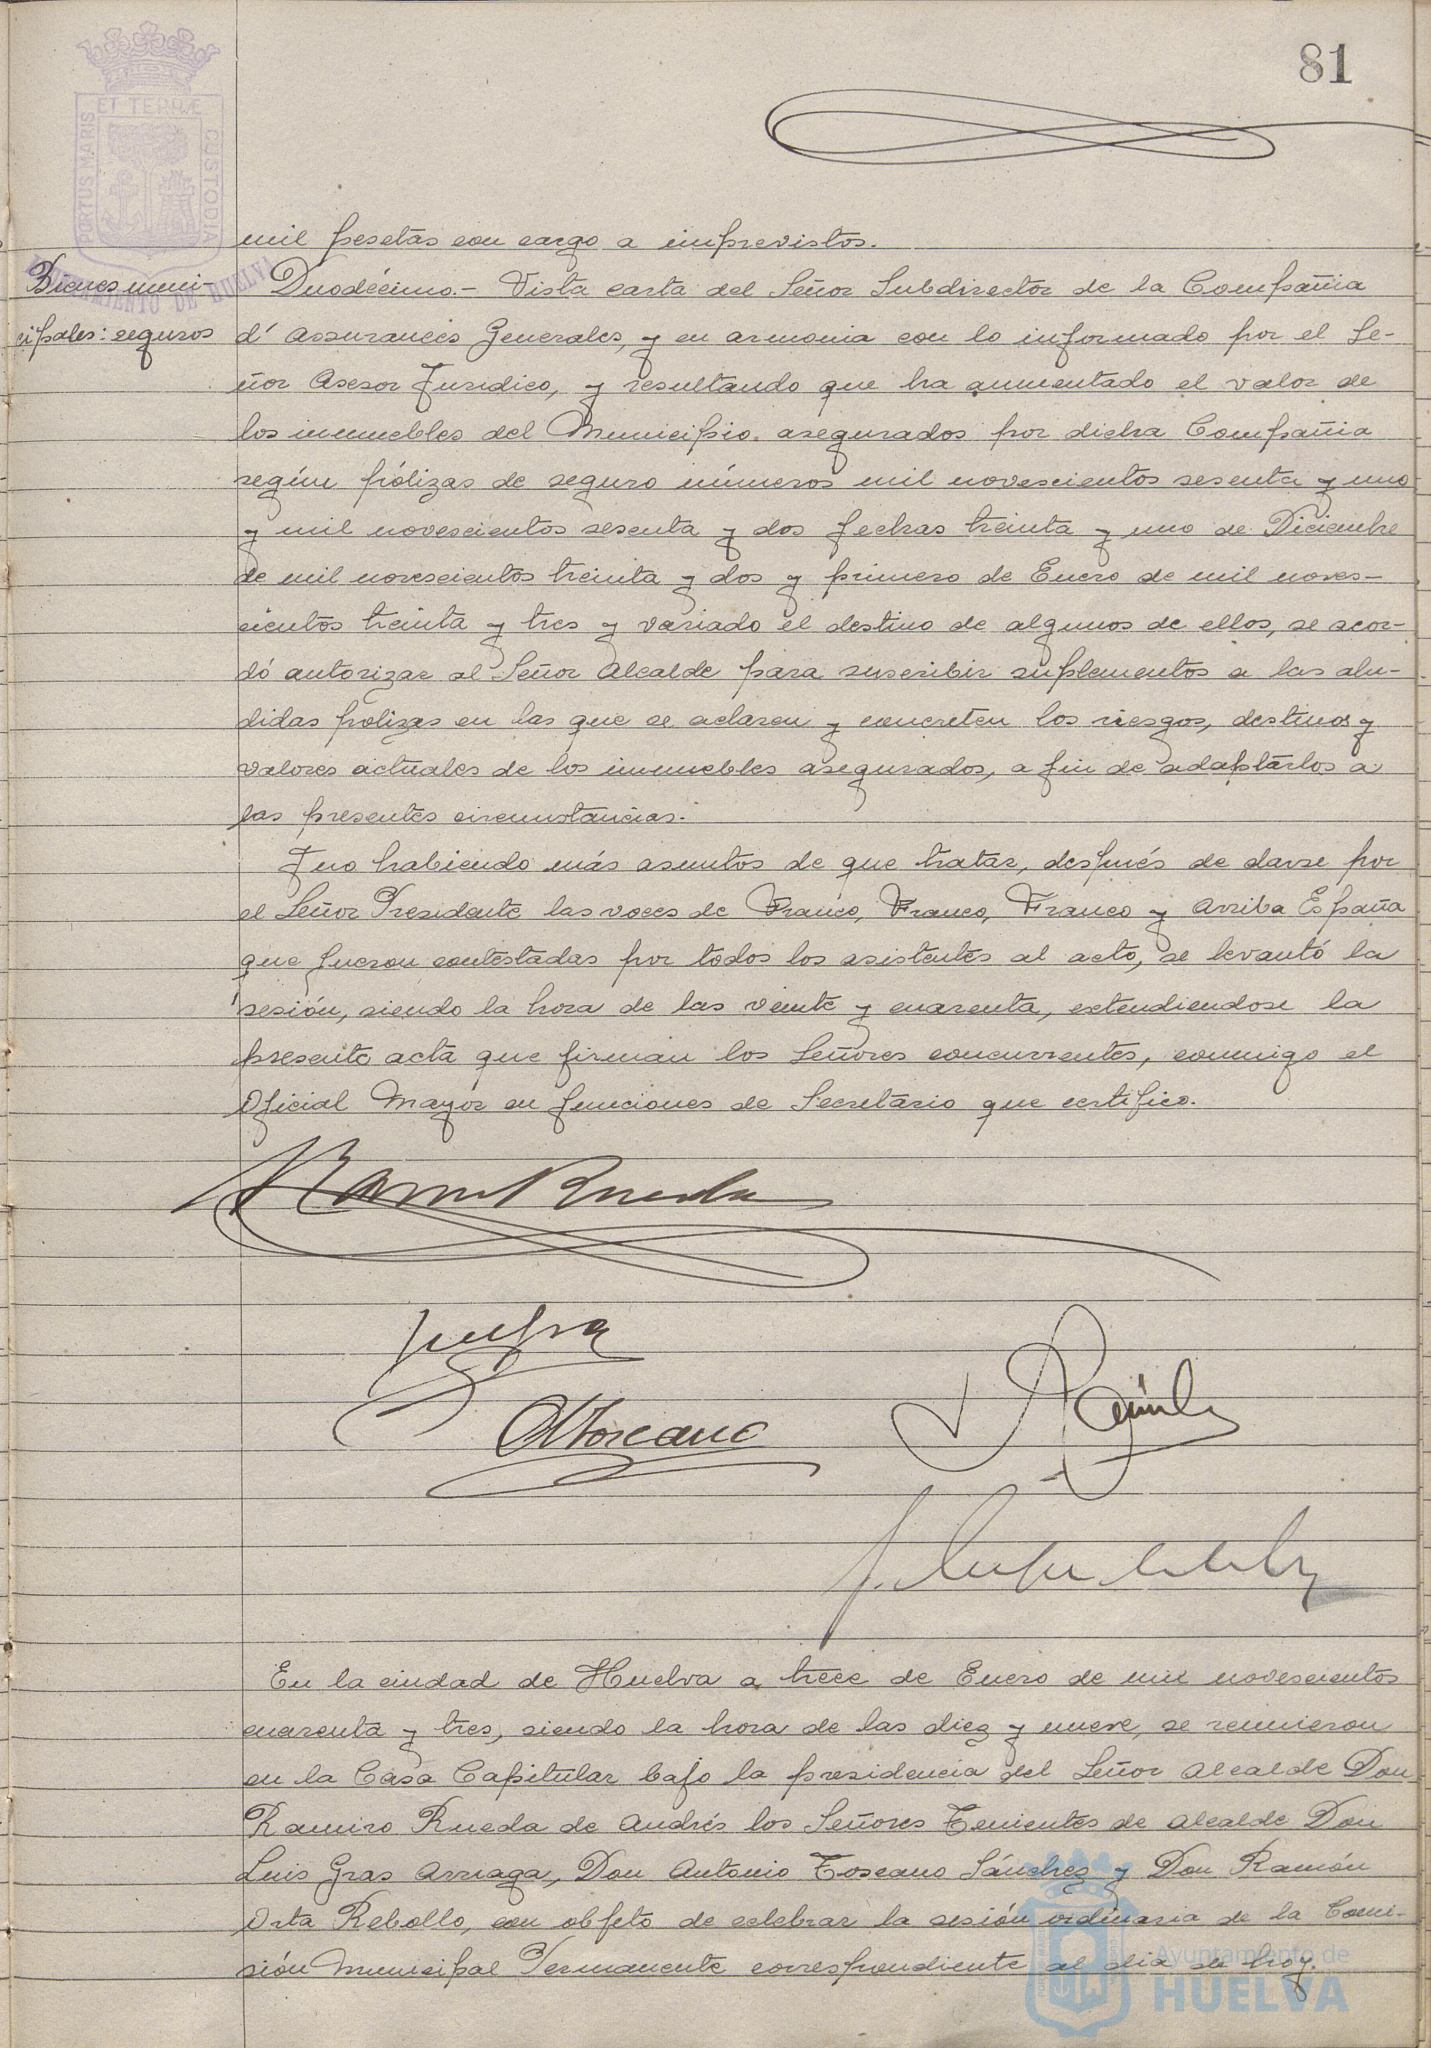 81
ET TERRÆ
PORTUS MARIS
CUSTODIA
AYUNTAMIENTO DE HUELVA
mil pesetas con cargo a imprevistos.
Bienes muni-
cipales: seguros
Duodécimo.- Vista carta del Señor Subdirector de la Compañia
d' Assurances Generales, y en armonia con lo informado por el Se-
ñor Asesor Juridico, y resultando que ha aumentado el valor de
los inmuebles del Municipio asegurados por dicha Compañia
según pólizas de seguro números mil novescientos sesenta y uno
y mil novescientos sesenta y dos fechas treinta y uno de Diciembre
de mil novescientos treinta y dos y primero de Enero de mil noves-
cientos treinta y tres y variado el destino de algunos de ellos, se acor-
dó autorizar al Señor Alcalde para suscribir suplementos a las alu-
didas polizas en las que se aclaren y concreten los riesgos, destinos y
valores actuales de los inmuebles asegurados, a fin de adaptarlos a
las presentes circunstancias.
Y no habiendo más asuntos de que tratar, después de darse por
el Señor Presidente las voces de Franco, Franco, Franco y Arriba España
que fueron contestadas por todos los asistentes al acto, se levantó la
sesión, siendo la hora de las veinte y cuarenta, extendiendose la
presente acta que firman los Señores concurrentes, conmigo el
Oficial Mayor en funciones de Secretario que certifico.
Rueda
AToscano
En la ciudad de Huelva a trece de Enero de mil novescientos
cuarenta y tres, siendo la hora de las diez y nueve, se reunieron
en la Casa Capitular bajo la presidencia del Señor Alcalde Don
Ramiro Rueda de Andrés los Señores Tenientes de Alcalde Don
Luis Gras Arruaga, Don Antonio Toscano Sánchez y Don Ramón
Orta Rebollo, con objeto de celebrar la sesión ordinaria de la Comi-
sión Municipal Permanente correspondiente al dia de hoy.
Ayuntamiento de
HUELVA